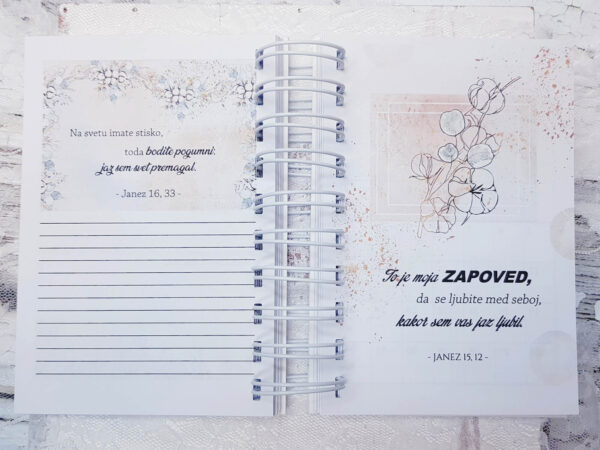 Na svetu imate stisko,
toda bodite pogumni:
jaz sem svet premagal.
- Janez 16, 33 -
To je moja ZAPOVED,
da se ljubite med seboj,
kakor sem vas jaz ljubil.
- JANEZ 15, 12 -